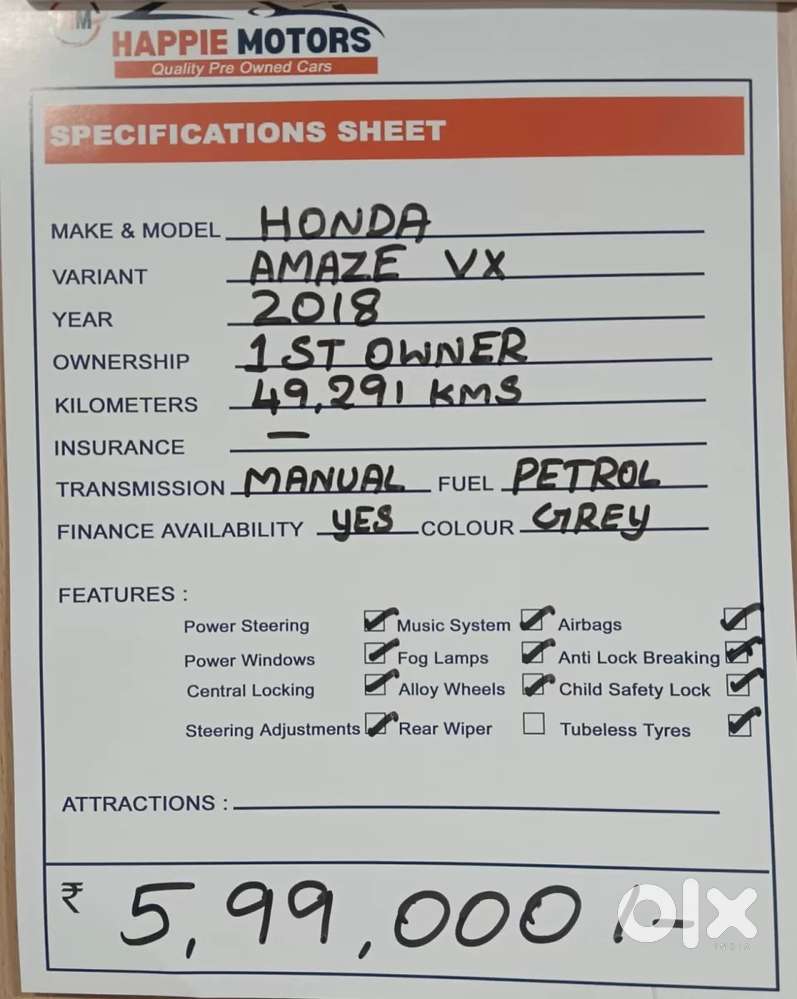 HM
HAPPIE MOTORS
Quality Pre Owned Cars
SPECIFICATIONS SHEET
MAKE & MODEL HONDA
VARIANT AMAZE VX
YEAR 2018
OWNERSHIP 1ST OWNER
KILOMETERS 49,291 KMS
INSURANCE —
TRANSMISSION MANUAL FUEL PETROL
FINANCE AVAILABILITY YES COLOUR GREY
FEATURES :
Power Steering Music System Airbags
Power Windows Fog Lamps Anti Lock Breaking
Central Locking Alloy Wheels Child Safety Lock
Steering Adjustments Rear Wiper Tubeless Tyres
ATTRACTIONS :
₹ 5,99,000/-
olx
INDIA